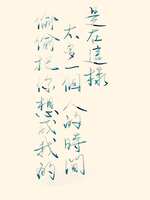 是在這樣
一個人的時間
偷偷把你想成我的